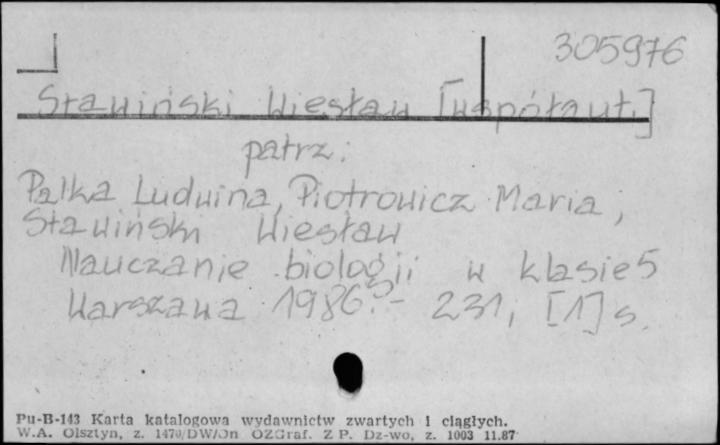 305976
Stawiński Wiesław [współaut.]
patrz:
Palka Ludwina, Piotrowicz Maria,
Stawiński Wiesław
Nauczanie biologii w klasie 5
Warszawa 1986.- 231, [1] s.
Pu-B-143 Karta katalogowa wydawnictw zwartych i ciągłych.
W.A. Olsztyn, z. 1470/DW/Dn OZGraf. Z P. Dz-wo, z. 1003 11.87